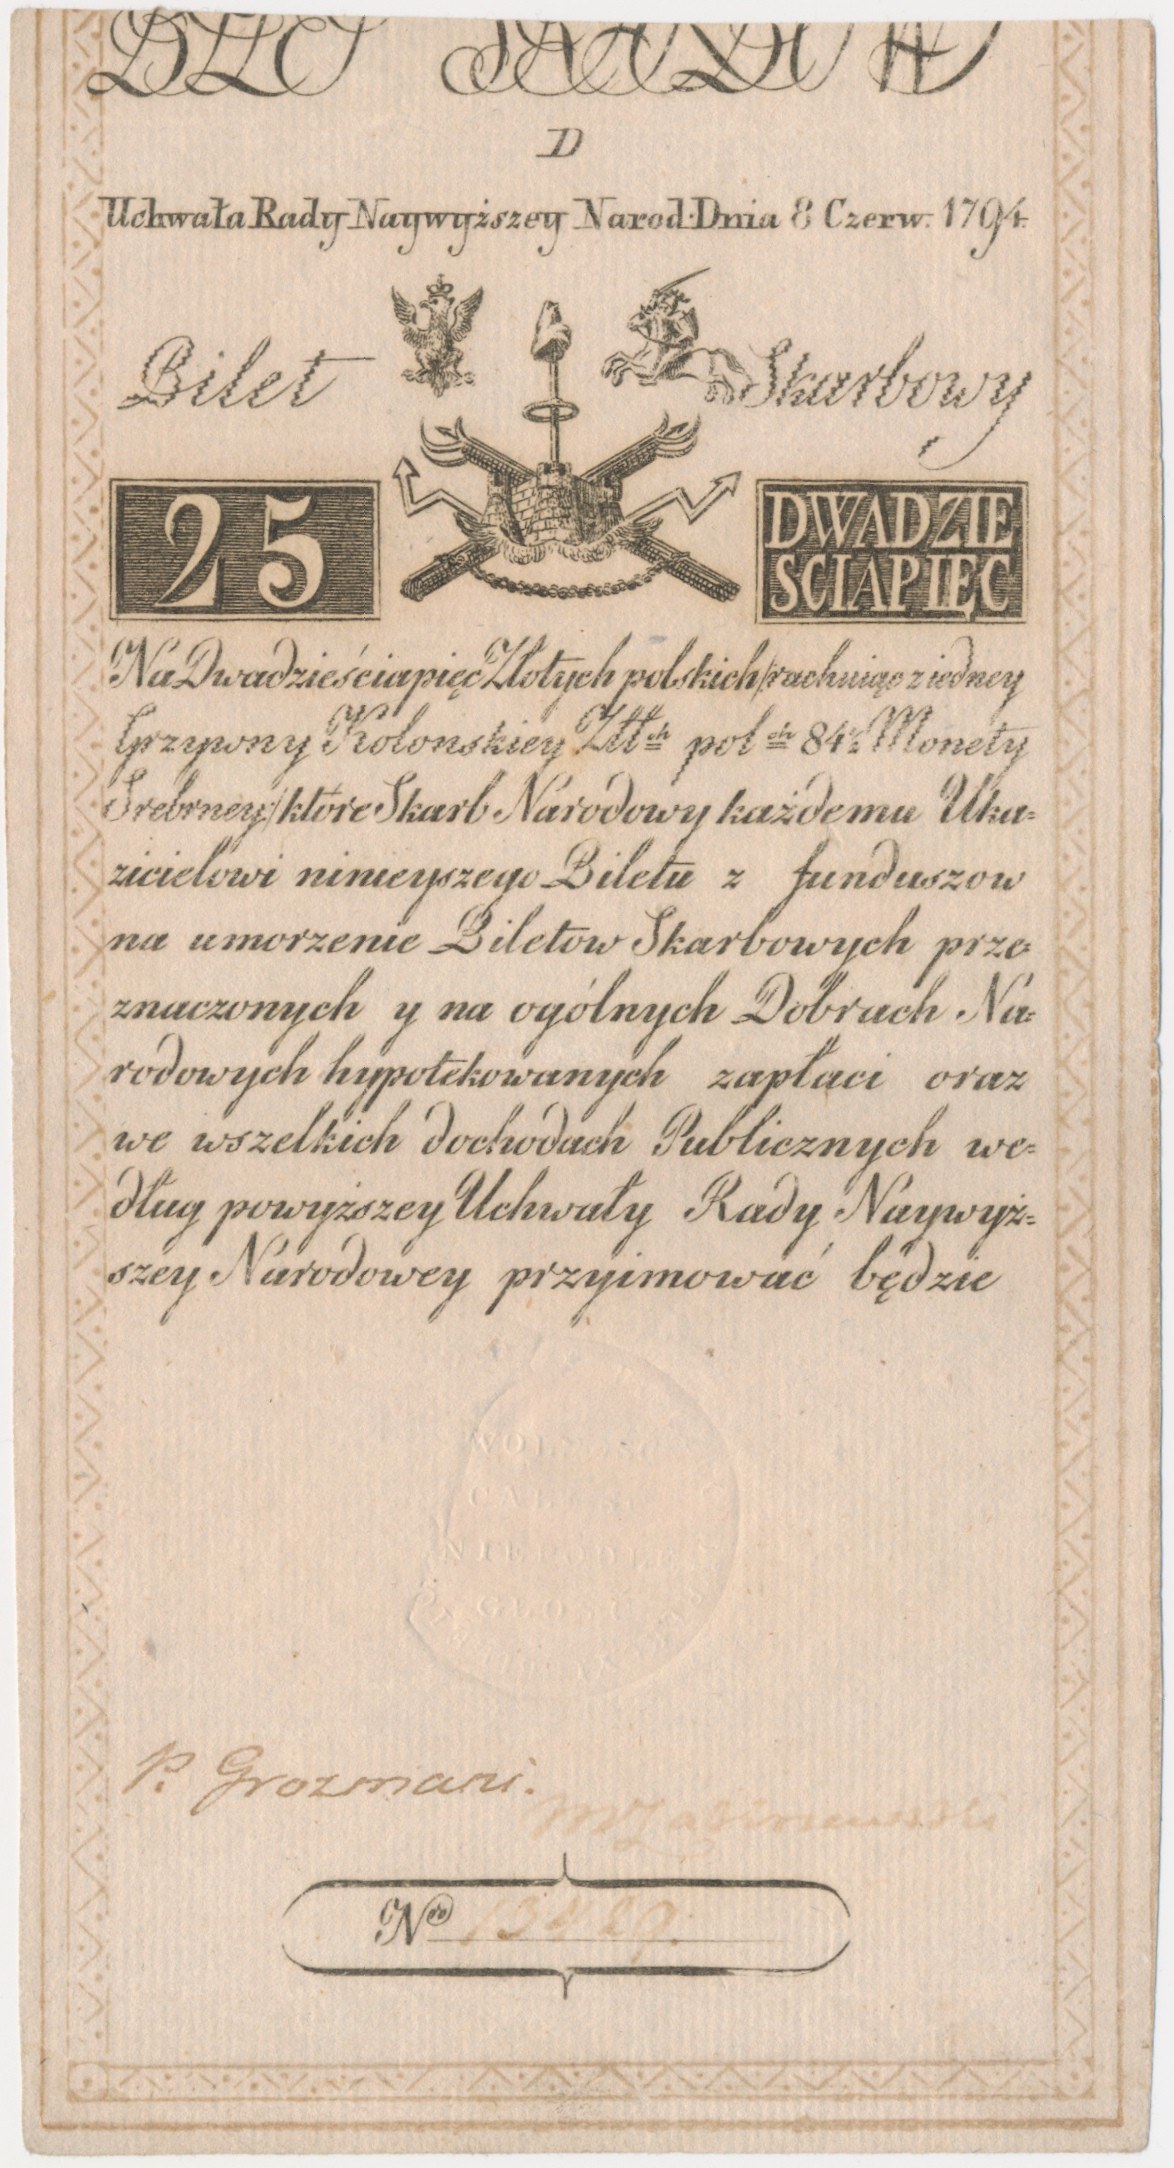 D
Uchwała Rady Naywyższey Narod: Dnia 8 Czerw: 1794
Bilet Skarbowy
25
DWADZIE
SCIAPIĘC
Na Dwadzieściapięć Złotych polskich /rachuiąc z iedney
Grzywny Kolonskiey Złł ch pol ch 84½ Monety
Srebrney/ które Skarb Narodowy każdemu Uka=
zicielowi ninieyszego Biletu z funduszow
na umorzenie Biletow Skarbowych prze=
znaczonych y na ogólnych Dobrach Na=
rodowych hypotekowanych zapłaci oraz
we wszelkich dochodach Publicznych we=
dług powyższey Uchwały Rady Naywyż=
szey Narodowey przyimować będzie
WOLNOSC
CAŁOSC
NIEPODLE
GŁOSC
P. Grozmani.
No 13420.